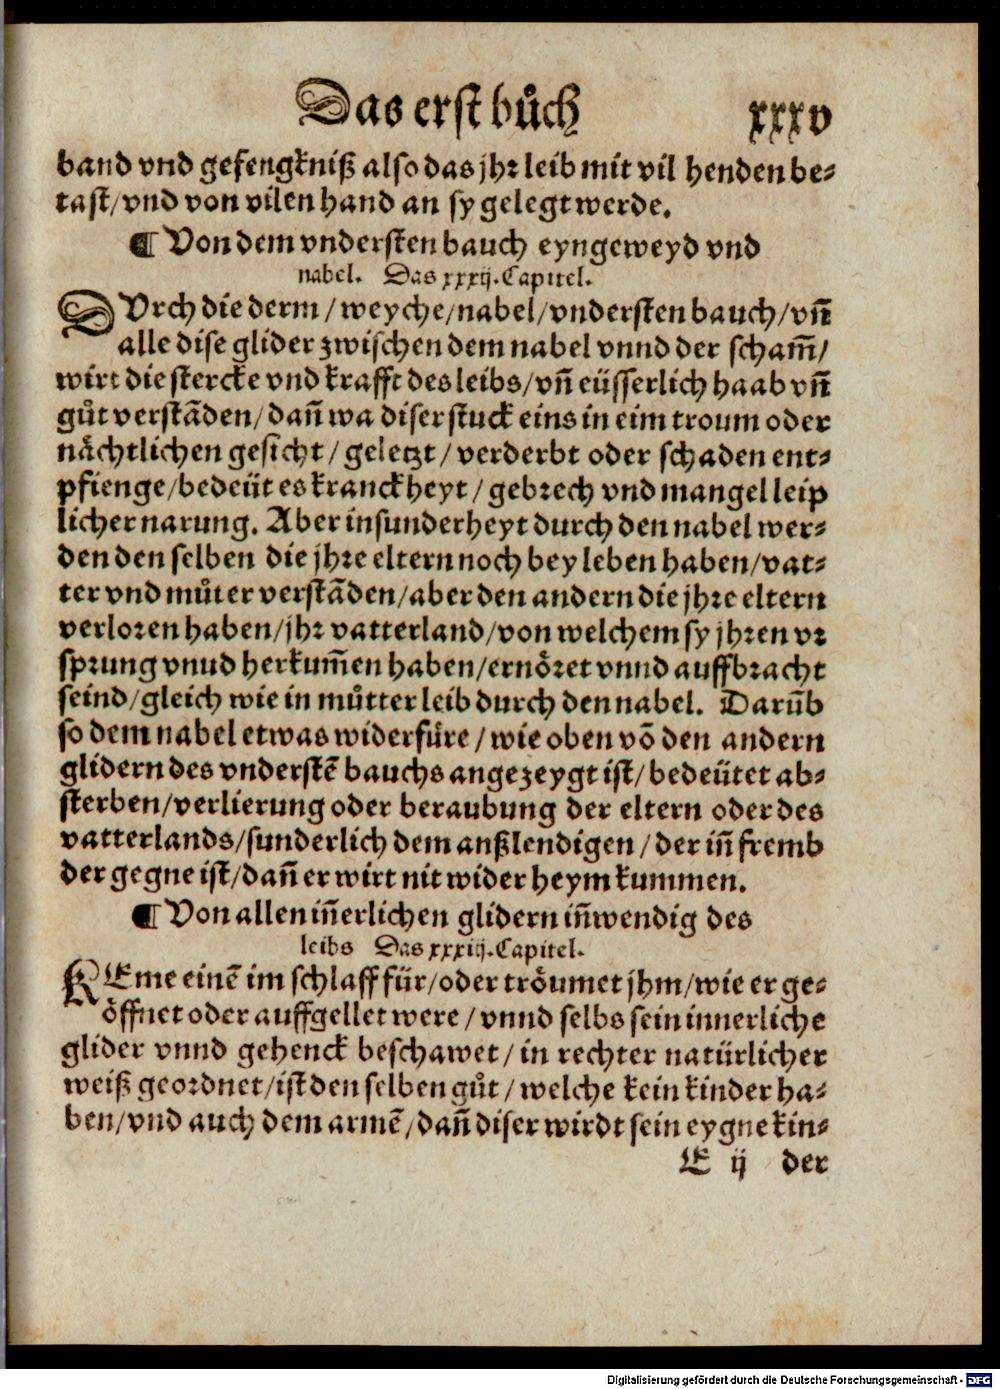 Das erst bůch xxxv
band vnd gefengkniß also das jhr leib mit vil henden be-
tast/vnd von vilen hand an sy gelegt werde.
¶ Von dem vndersten bauch eyngeweyd vnd
nabel. Das xxxij. Capitel.
DVrch die derm/weyche/nabel/vndersten bauch/vn̄
alle dise glider zwischen dem nabel vnnd der scham̄/
wirt die stercke vnd krafft des leibs/vn̄ eüsserlich haab vn̄
gůt verstāden/dan̄ wa diser stuck eins in eim troum oder
nächtlichen gesicht/geletzt/verderbt oder schaden ent-
pfienge/bedeüt es kranckheyt/gebrech vnd mangel leip
licher narung. Aber insunderheyt durch den nabel wer-
den den selben die jhre eltern noch bey leben haben/vat-
ter vnd můter verstāden/aber den andern die jhre eltern
verloren haben/jhr vatterland/von welchem sy jhren vr
sprung vnud herkum̄en haben/ernöret vnnd auffbracht
seind/gleich wie in můtter leib durch den nabel. Darūb
so dem nabel etwas widerfüre/wie oben vō den andern
glidern des vnderstē bauchs angezeygt ist/bedeütet ab-
sterben/verlierung oder beraubung der eltern oder des
vatterlands/sunderlich dem anßlendigen/der in̄ fremb
der gegne ist/dan̄ er wirt nit wider heym kummen.
¶ Von allen in̄erlichen glidern in̄wendig des
leibs Das xxxiij. Capitel.
KEme einē im schlaff für/oder tröumet jhm/wie er ge-
öffnet oder auffgellet were/vnnd selbs sein innerliche
glider vnnd gehenck beschawet/in rechter natürlicher
weiß geordnet/ist den selben gůt/welche kein kinder ha-
ben/vnd auch dem armē/dan̄ diser wirdt sein eygne kin-
E ij der
Digitalisierung gefördert durch die Deutsche Forschungsgemeinschaft - DFG